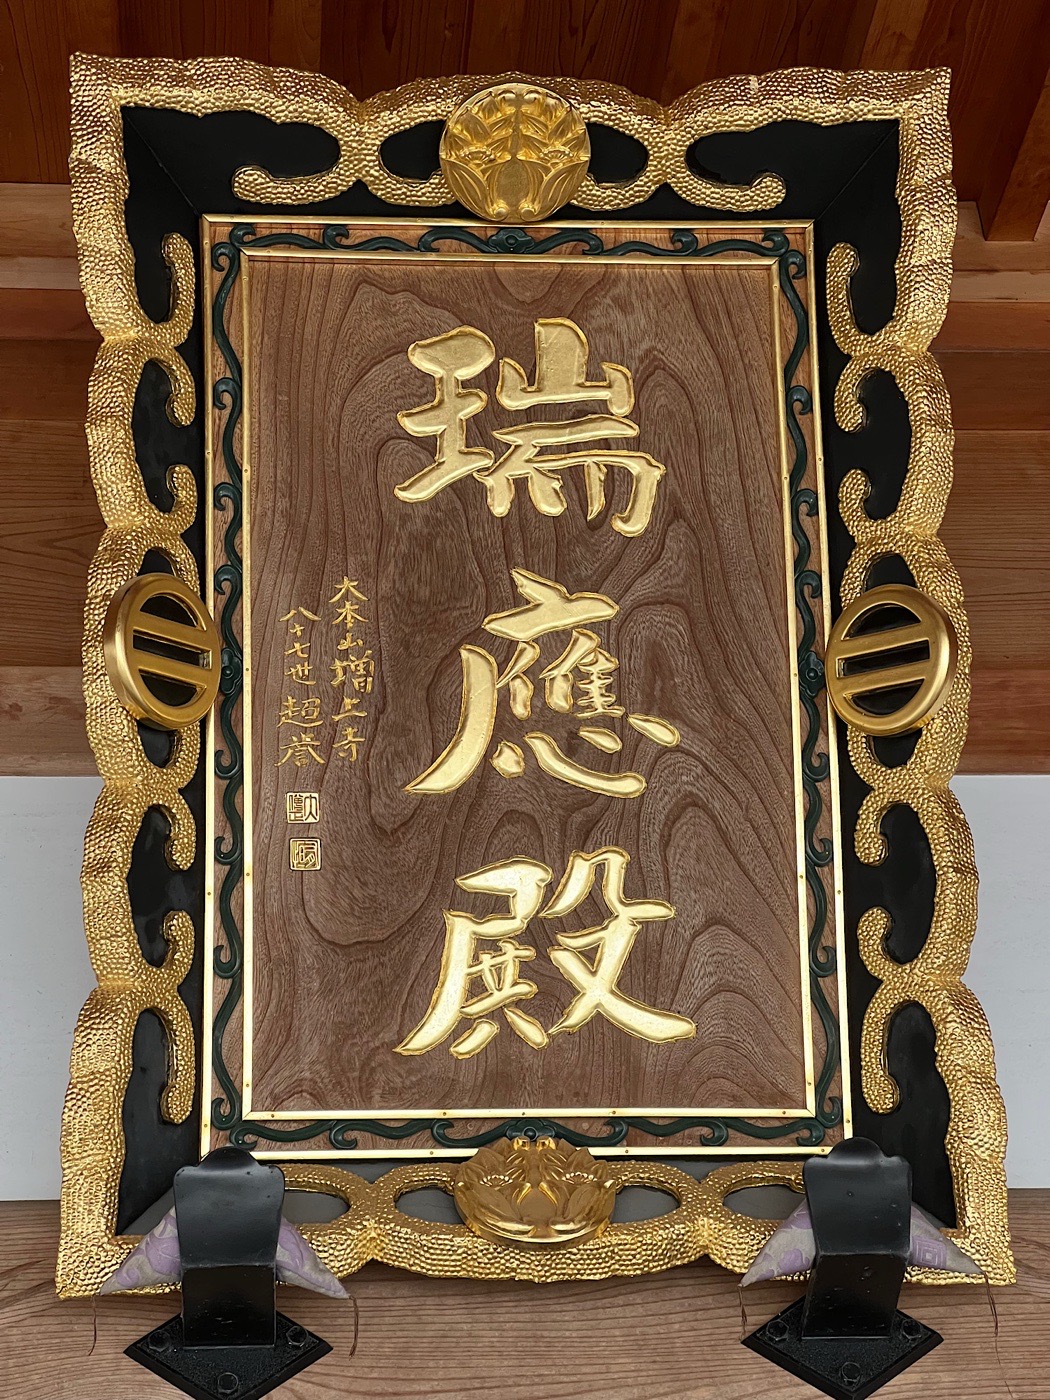 瑞應殿
大本山増上寺
八十七世超誉